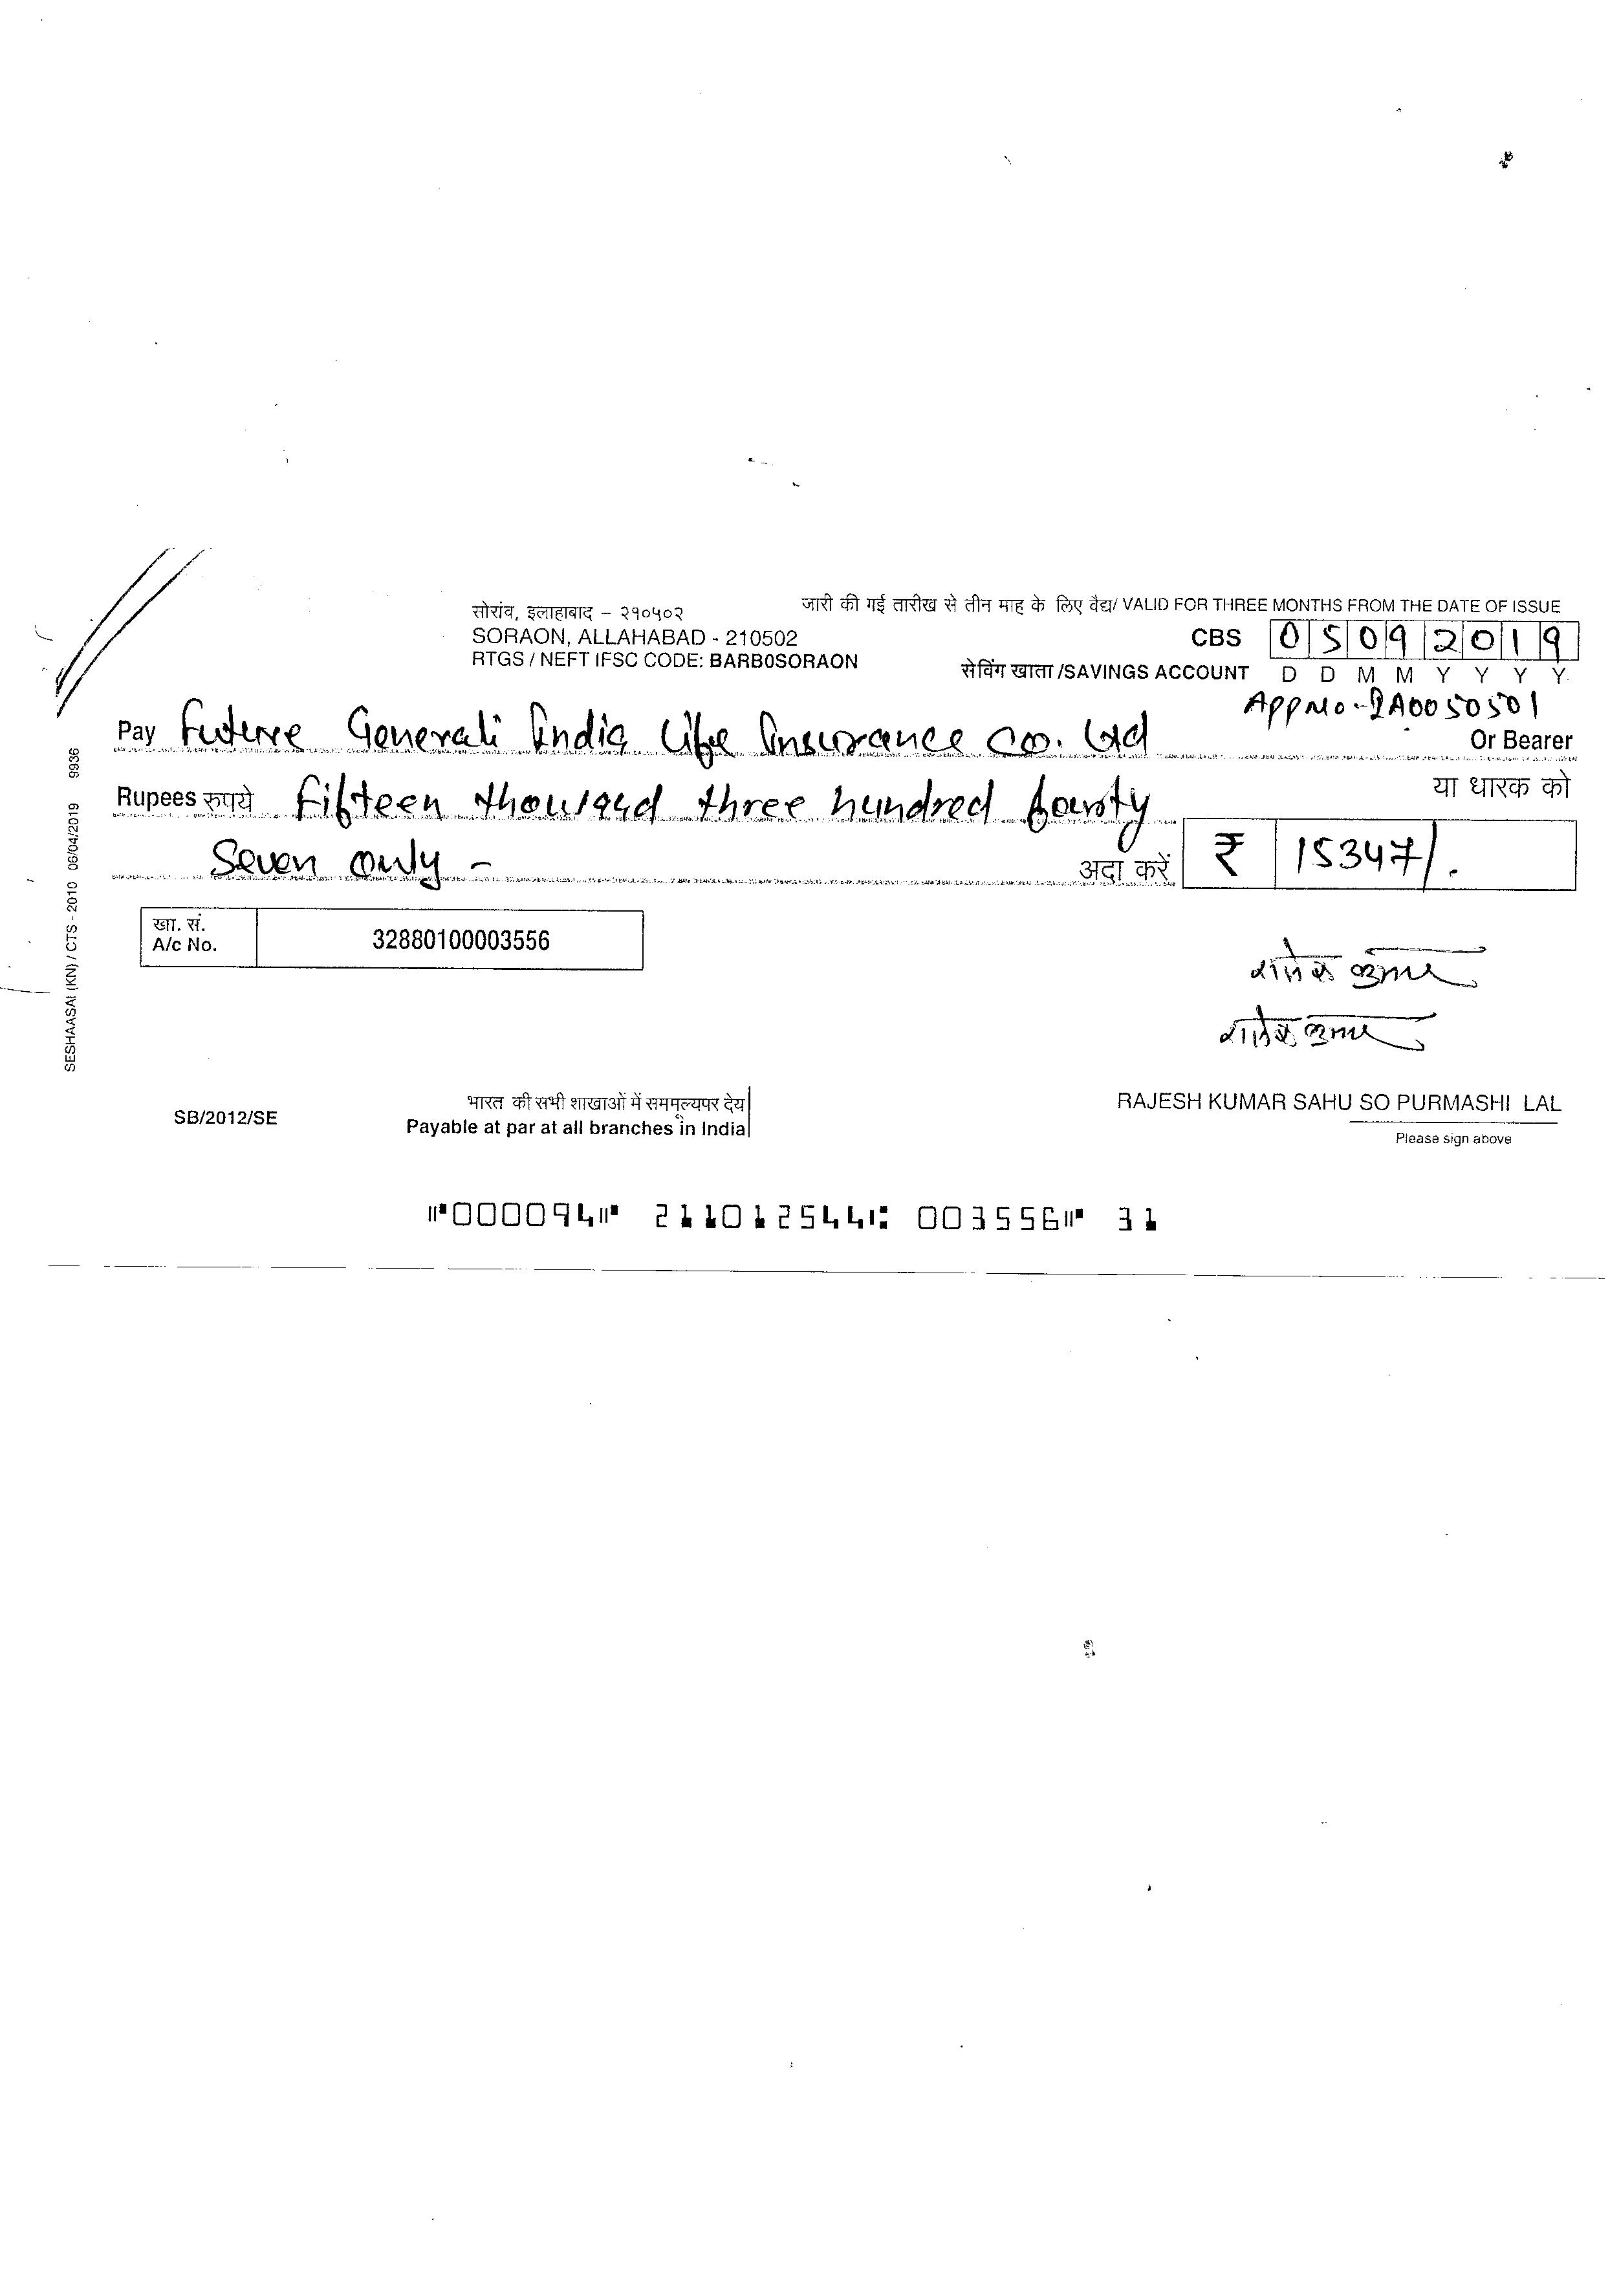 सोरांव, इलाहाबाद – २१०५०२
SORAON, ALLAHABAD - 210502
RTGS / NEFT IFSC CODE: BARB0SORAON
जारी की गई तारीख से तीन माह के लिए वैद्य/ VALID FOR THREE MONTHS FROM THE DATE OF ISSUE
CBS 05092019
सेविंग खाता /SAVINGS ACCOUNT D D M M Y Y Y Y
App No - 2A0050501
Pay Future Generali India Life Insurance Co. Ltd
Or Bearer
या धारक को
Rupees रुपये Fifteen thousand three hundred fourty
Seven only -
अदा करें ₹ 15347/.
खा. सं.
A/c No. 32880100003556
SESHAASAI (KN) / CTS - 2010 06/04/2019 9936
राजेश कुमार
राजेश कुमार
SB/2012/SE
भारत की सभी शाखाओं में सममूल्यपर देय
Payable at par at all branches in India
RAJESH KUMAR SAHU SO PURMASHI LAL
Please sign above
⑈000094⑈ 211012544⑆ 003556⑈ 31